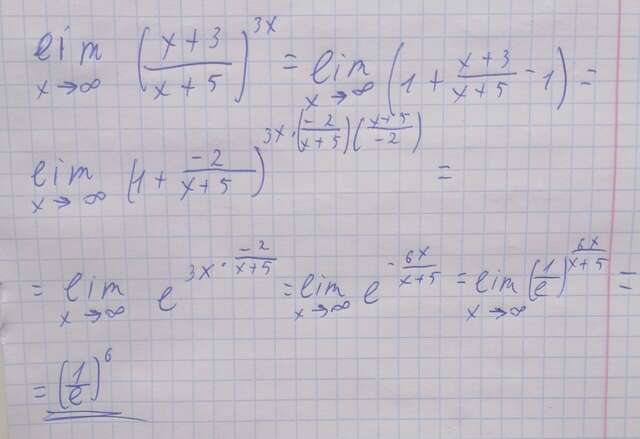 lim x→∞ ((x+3)/(x+5))^(3x) = lim x→∞ (1 + (x+3)/(x+5) - 1) =
lim x→∞ (1 + (-2)/(x+5))^(3x · ((-2)/(x+5)) ((x+5)/(-2))) =
= lim x→∞ e^(3x · (-2)/(x+5)) = lim x→∞ e^(-(6x)/(x+5)) = lim x→∞ (1/e)^((6x)/(x+5)) =
= (1/e)^6